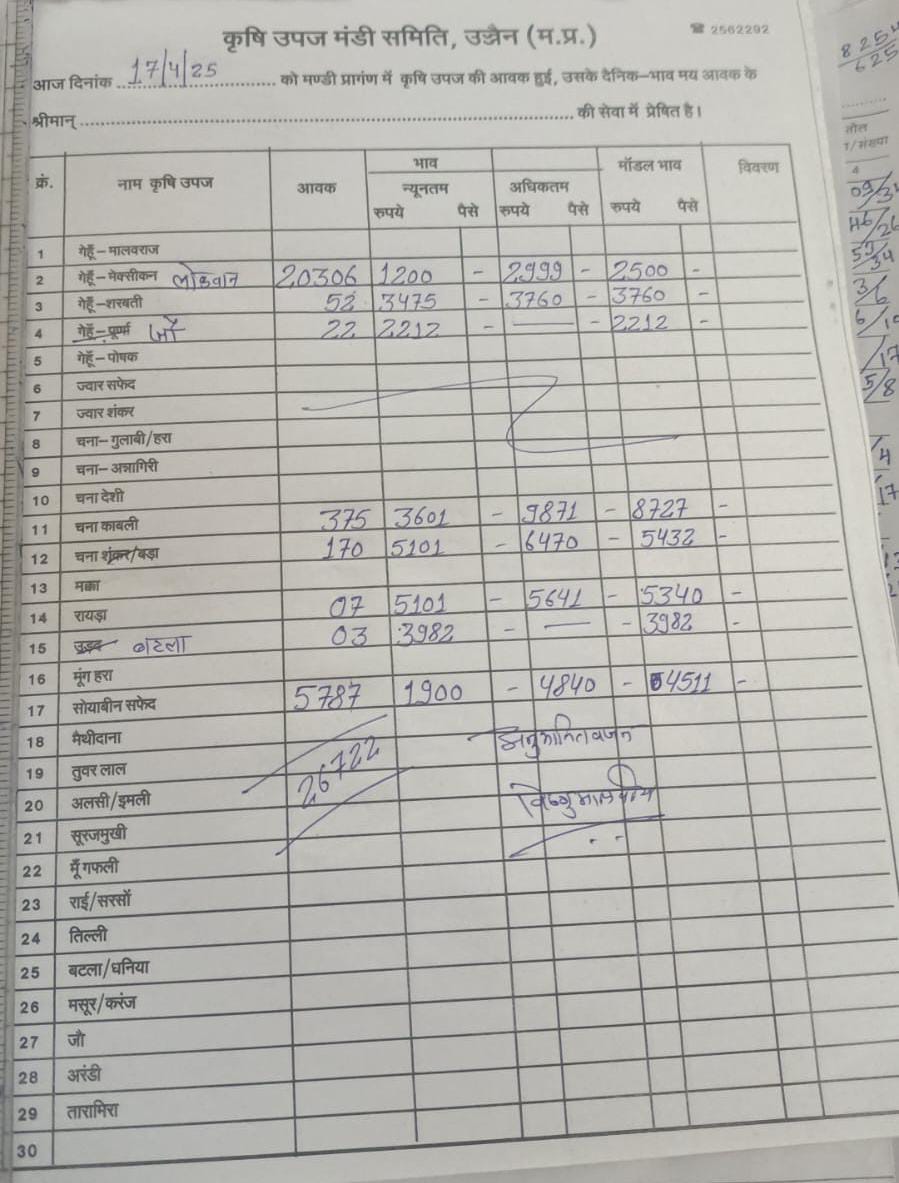 कृषि उपज मंडी समिति, उज्जैन (म.प्र.) ☎ 2562292
आज दिनांक 17/4/25 को मण्डी प्रागंण में कृषि उपज की आवक हुई, उसके दैनिक-भाव मय आवक के
श्रीमान् .......... की सेवा में प्रेषित है।
क्रं. नाम कृषि उपज आवक भाव मॉडल भाव विवरण
न्यूनतम अधिकतम
रुपये पैसे रुपये पैसे रुपये पैसे
1 गेहूँ-मालवराज
2 गेहूँ-मेक्सीकन लोकवान 20306 1200 - 2999 - 2500 -
3 गेहूँ-शरबती 52 3475 - 3760 - 3760 -
4 गेहूँ-पूर्णा जौ 22 2212 - — - 2212 -
5 गेहूँ-पोषक
6 ज्वार सफेद
7 ज्वार शंकर
8 चना-गुलाबी/हरा
9 चना-अन्नागिरी
10 चना देशी
11 चना काबली 375 3601 - 9871 - 8727 -
12 चना शंकर/बड़ा 170 5101 - 6470 - 5432 -
13 मक्का
14 रायड़ा 07 5101 - 5641 - 5340 -
15 उड़द बटला 03 3982 - — - 3982 -
16 मूंग हरा
17 सोयाबीन सफेद 5787 1900 - 4840 - 4511 -
18 मैथीदाना अनुमानित वजन
19 तुवर लाल 26722
20 अलसी/इमली
21 सूरजमुखी
22 मूँगफली
23 राई/सरसों
24 तिल्ली
25 बटला/धनिया
26 मसूर/करंज
27 जौ
28 अरंडी
29 तारामिरा
30